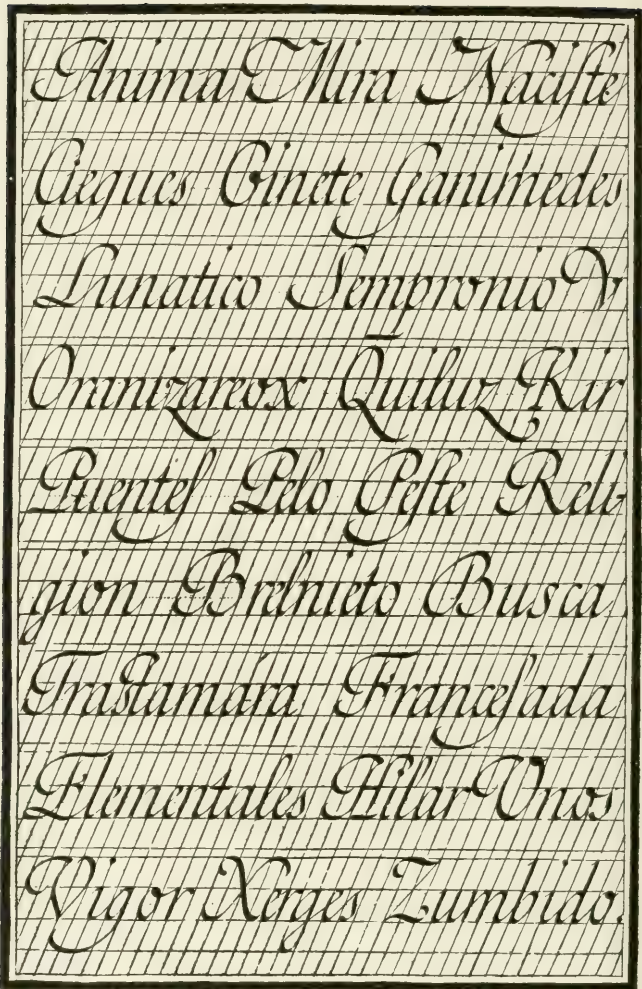 Anima Mira Naciſte
Ciegues Ginete Ganimedes
Lunatico Sempronio V
Omnizareox Quiluz Kir
Puenteſ Pelo Peſte Reli-
gion Brelnieto Busca
Trastamára Franceſada
Elementales Hilar Vnos
Vigor Xerges Zumbido.